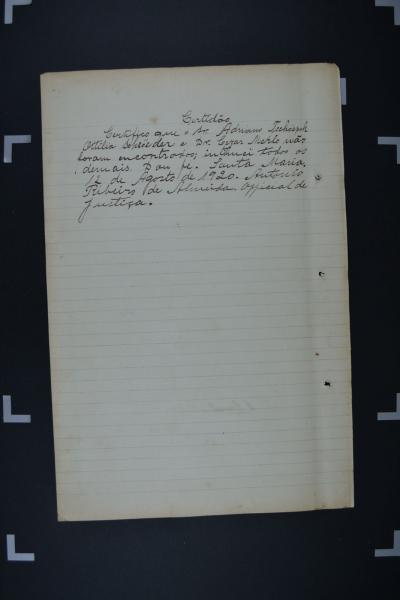 Certidão
Certifico que o Sr. Adriano
Ottilia Schieder e Dr. Cezar Merlo não
foram encontrados, intimei todos os
demais. Dou fé. Santa Maria,
12 de Agosto de 1920. Antonio
Ribeiro de Almeida. Official de
Justiça.